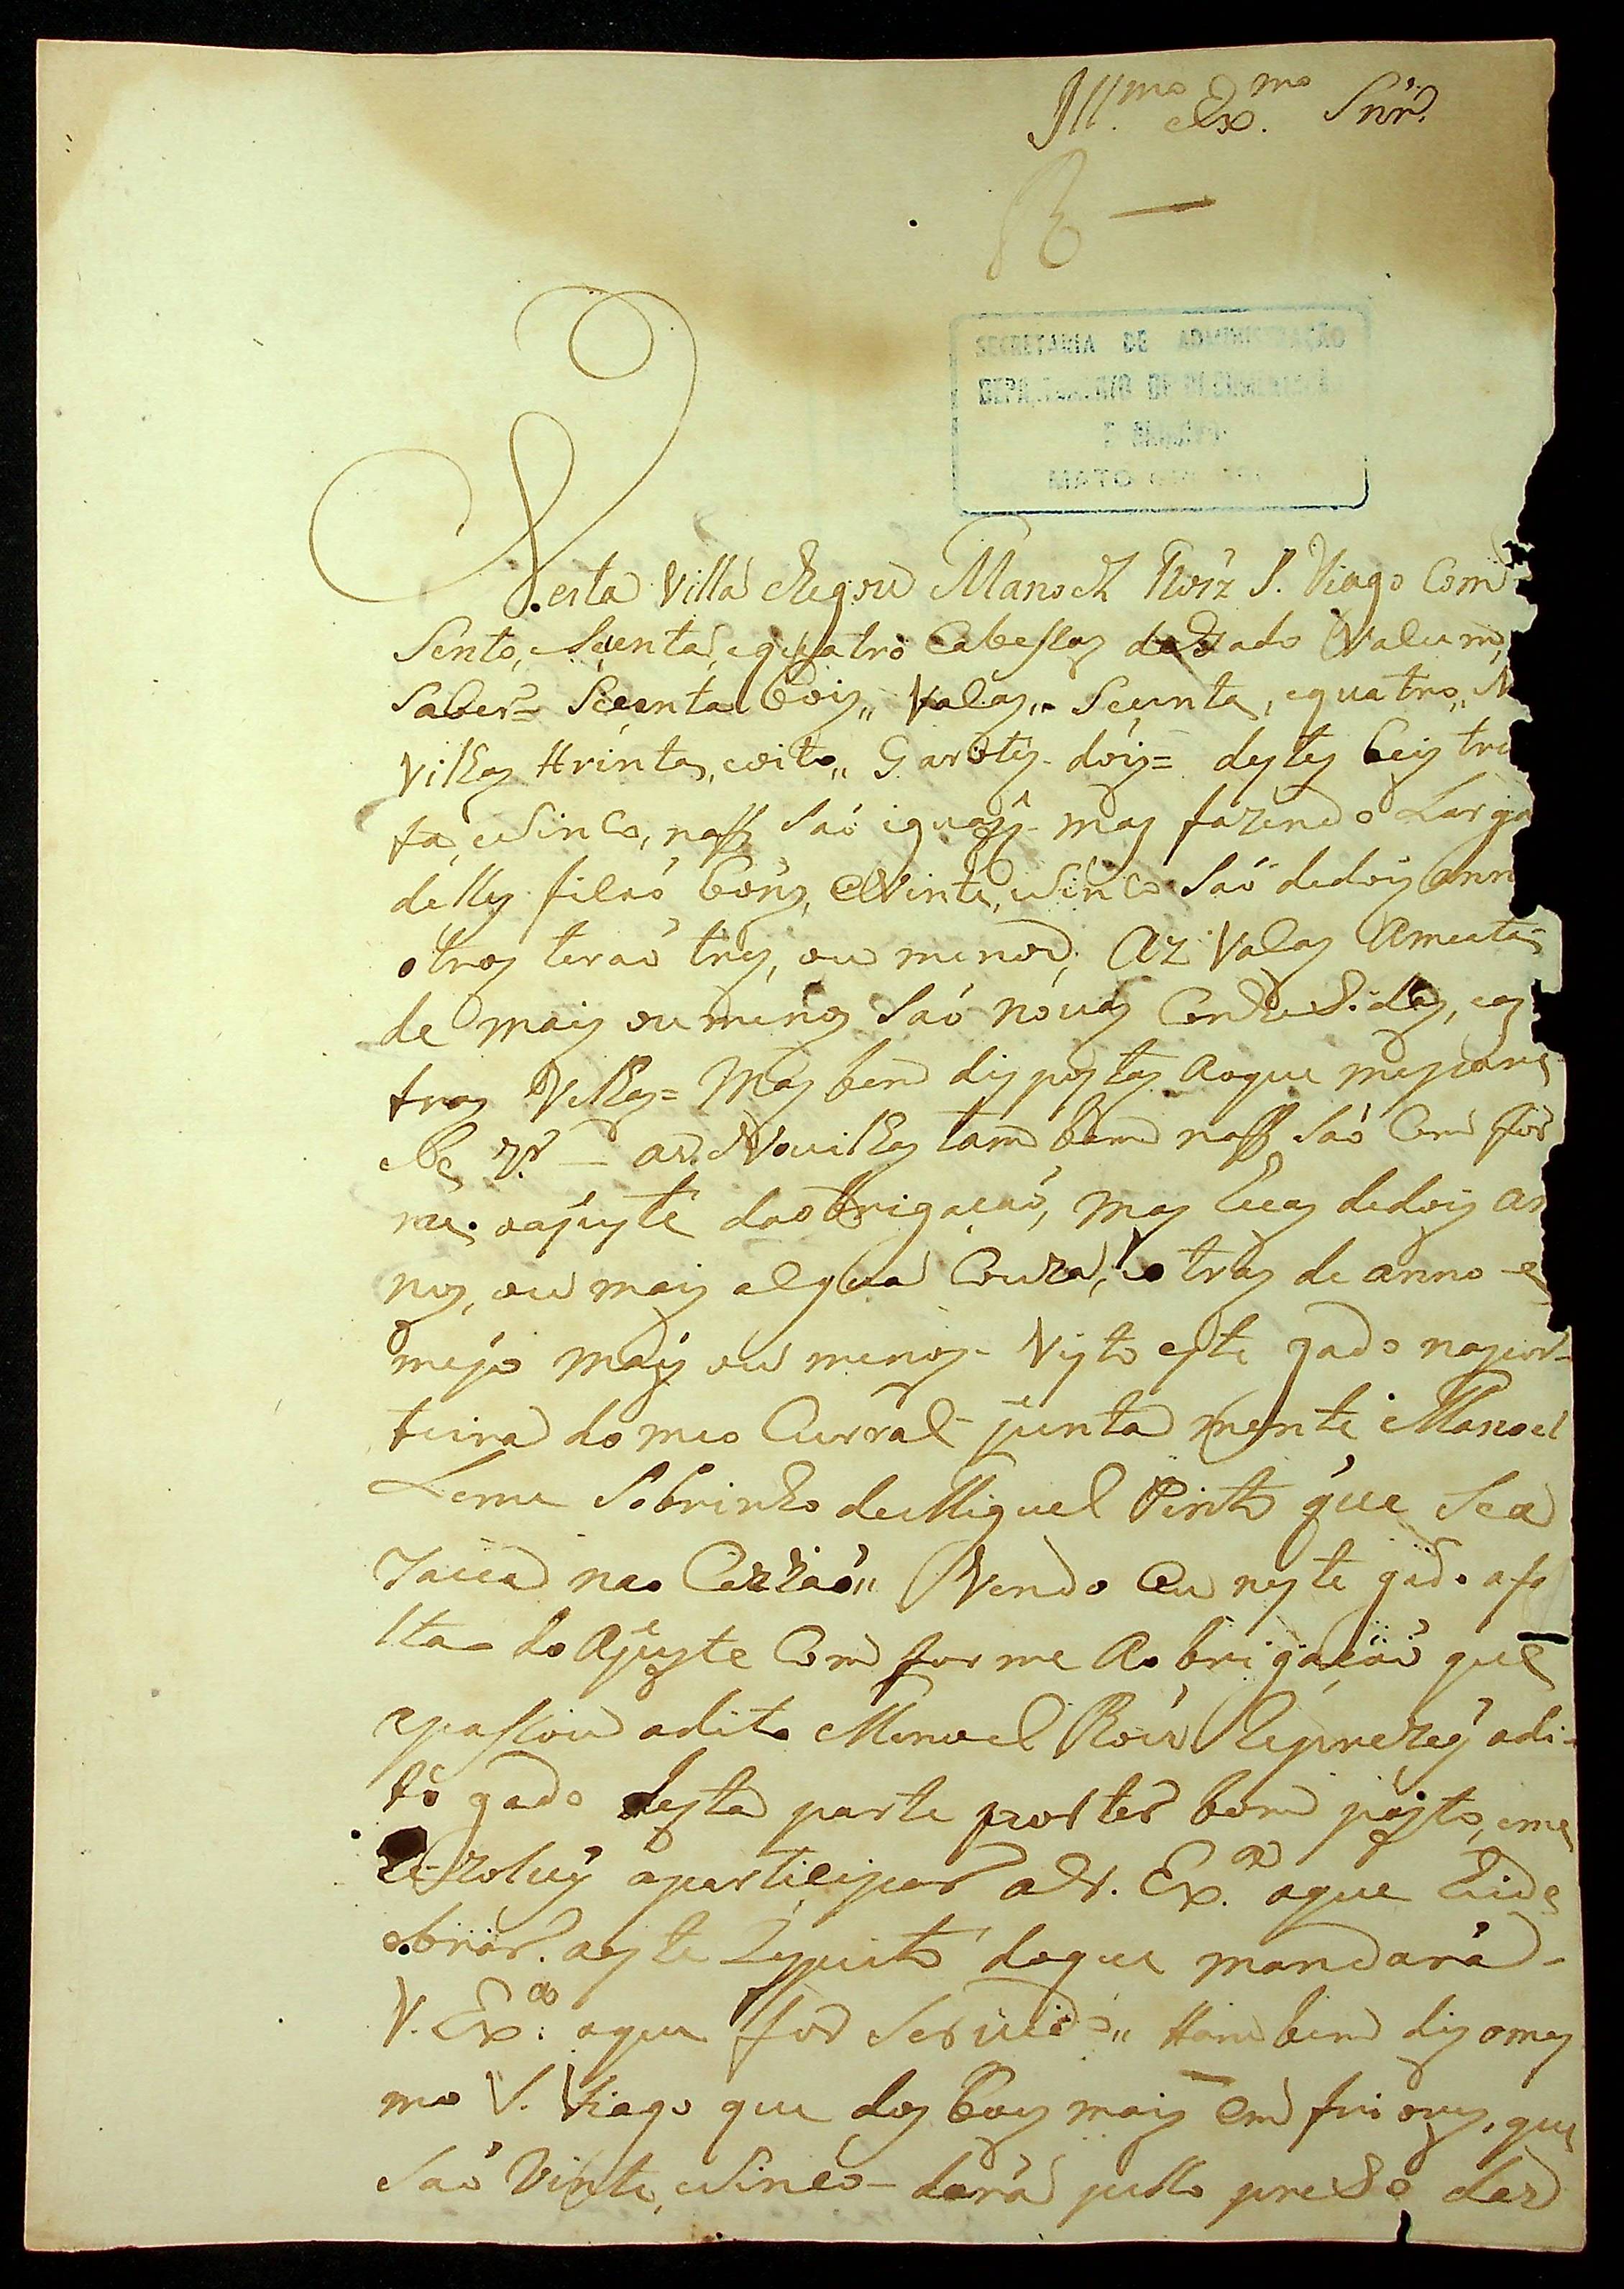 Ill.mo Ex.mo Snr.
R —
SECRETARIA DE ADMINISTRAÇÃO
E ARQUIVO
MATO
Nesta Villa chegou Manoel Roiz S. Tiago Com
Sento, Secenta, equatro Cabessas de Gado Vacum,
Saber= Secenta boiz,, Vacas,, Secenta, equatro,, N
vilhas trinta, eoito,, Garotes doiz= destes bois tri
ta, esinco, nass Saó iguais mas fazendo Larga
delles filaó bons, eVinte, esinco Saó dedois ann
otros teraó tres, ou menos; Az Vacas Ametá
de mais ou menos Saó novas , eas
tras Velhas= Mas bem dispostas aoque mepare
as Novilhas tam bem nass Saó Com for
me oajuste daobrigacaó, mas huas dedois an
nos, ou mais algua Couza, eotras de anno e
mejo mais ou menos- Visto este gado napor-
teira do meo Curral junta mente Manoel
Leme Sobrinho deMiguel Pinto que Sea
na o Vendo Eu neste gado afa
lta do Ajuste Com forme Aobrigacaó que
epassou adito Manoel Roiz Reprezei adi-
to gado desta parte por ter bom pasto, eme
Rezolvi aparticipar a V. Ex.a aque hide
obrar. aeste Respeito doque mandará-
V. Ex.a oque for Servido,, tambem diz omes
mo S. Tiago que dos bois mais em friores, que
Saó Vinte, esinco- dará pello preso des